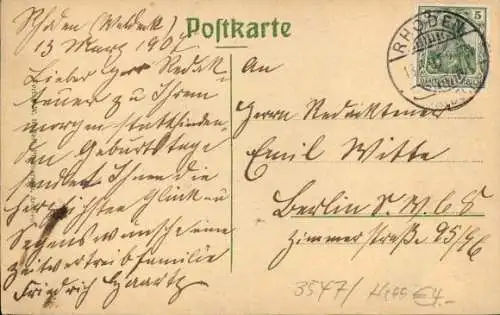 Postkarte
Rhoden (Waldeck)
13 März 1907
Lieber Herr Redak-
teur zu Ihrem
morgen stattfinden-
den Geburtstage
sendet Ihnen die
herzlichsten Glück- u
Segenswünsche eine
Zeitvertreib Familie
Friedrich
An
Herrn Redakteur
Emil Witte
Berlin S. W. 68
Zimmerstraße 95/96
RHODEN
5
3547/ €4.-